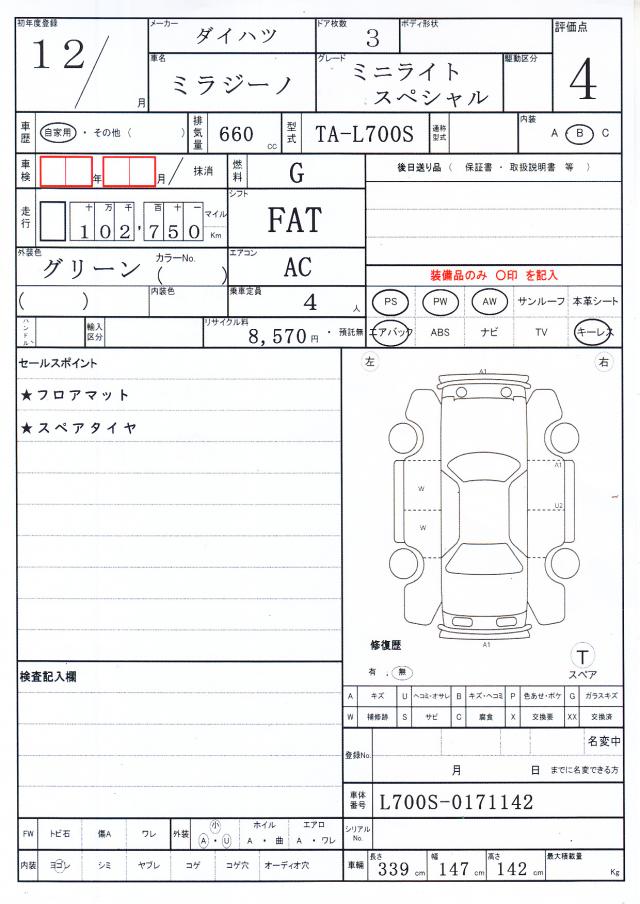 初年度登録 メーカー ダイハツ ドア枚数 3 ボディ形状 評価点
12/ 月 車名 ミラジーノ グレード ミニライト スペシャル 駆動区分 4
車歴 自家用 ・ その他 ( ) 排気量 660 cc 型式 TA-L700S 通称型式 内装 A ・ B C
車検 年 月 / 抹消 燃料 G 後日送り品 ( 保証書 ・ 取扱説明書 等 )
走行 十 万 千 百 十 一 マイル シフト FAT
102,750 Km
外装色 グリーン カラーNo. ( ) エアコン AC 装備品のみ 〇印 を記入
( ) 内装色 乗車定員 4 人 PS PW AW サンルーフ 本革シート
ハンドル 輸入区分 リサイクル料 8,570 円 ・ 預託無 エアバック ABS ナビ TV キーレス
セールスポイント 左 右
★フロアマット A1
★スペアタイヤ
A1
W
U2
W
A1
修復歴
有 . 無
T
スペア
検査記入欄
A キズ U ヘコミ・オサレ B キズ・ヘコミ P 色あせ・ボケ G ガラスキズ
W 補修跡 S サビ C 腐食 X 交換要 XX 交換済
登録No. 名変中
月 日 までに名変できる方
車体番号 L700S-0171142
シリアルNo.
FW トビ石 傷A ワレ 外装 小 A ・ U ホイル A ・ 曲 エアロ A ・ ワレ
内装 ヨゴレ シミ ヤブレ コゲ コゲ穴 オーディオ穴
車輛 長さ 339 cm 幅 147 cm 高さ 142 cm 最大積載量 Kg